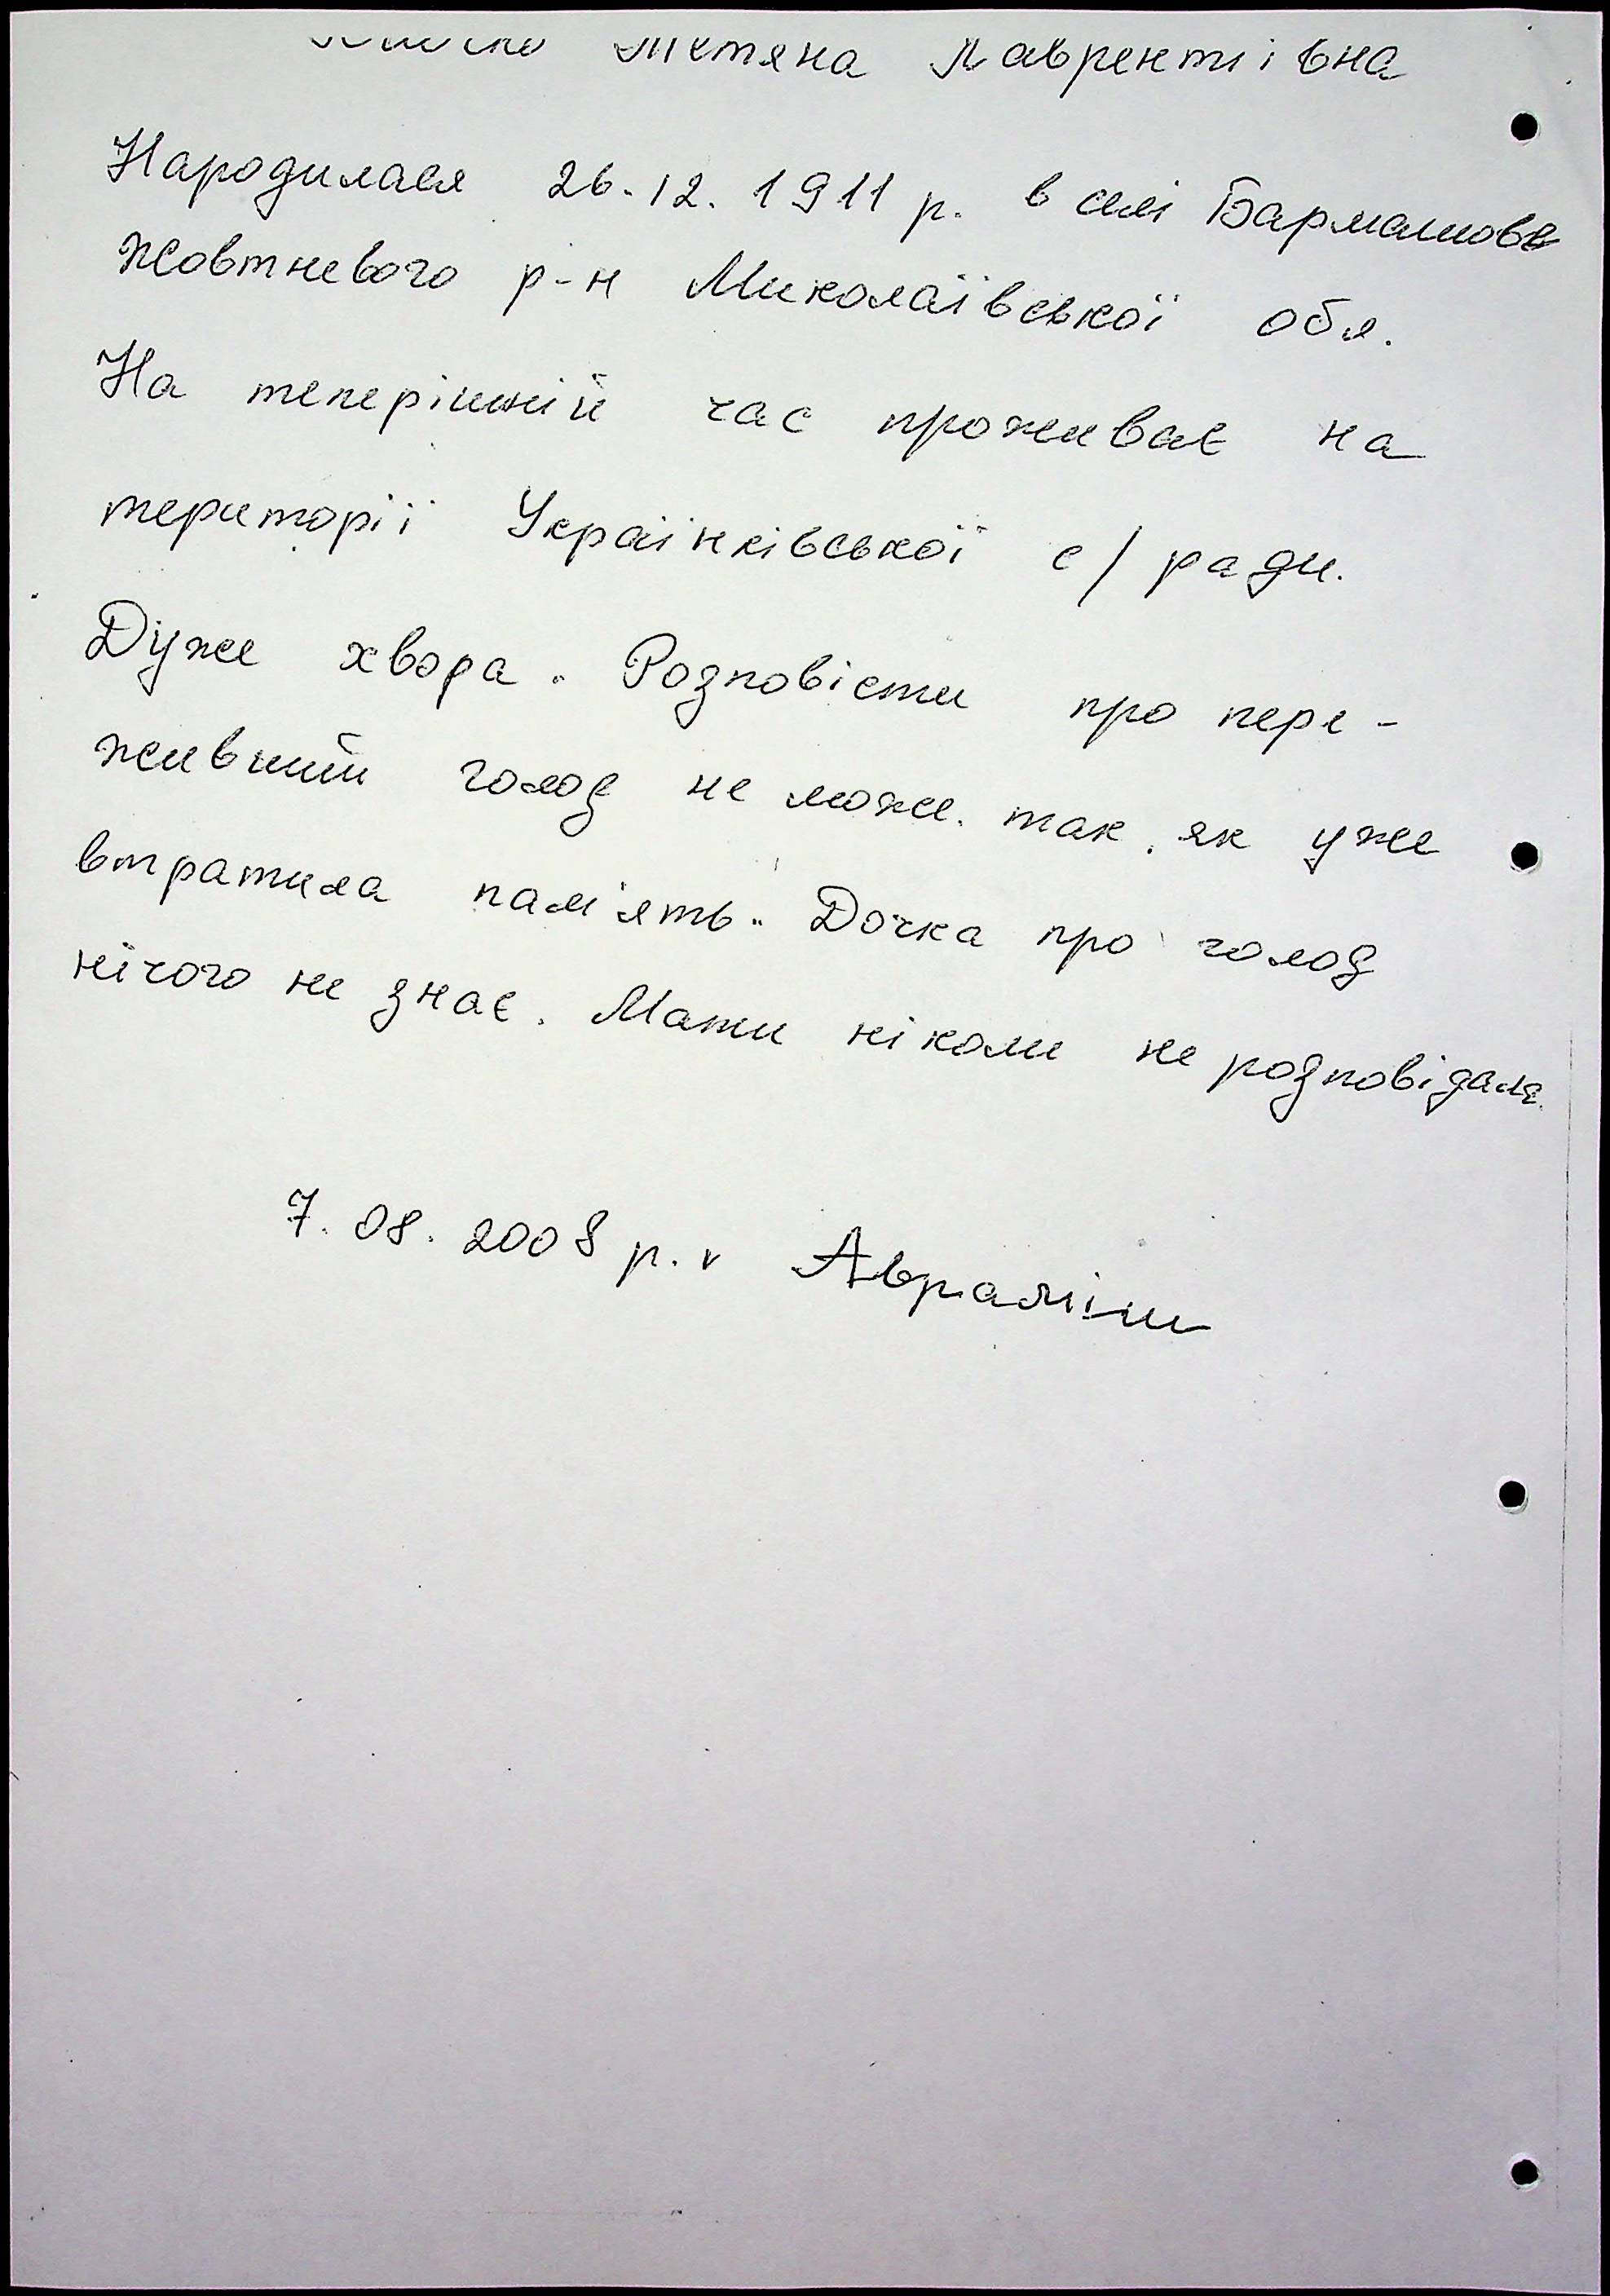 Тетяна Лаврентіївна
Народилася 26.12.1911 р. в селі Бармашове
Жовтневого р-н Миколаївської обл.
На теперішній час проживає на
території Українківської с/ради.
Дуже хвора. Розповісти про пере-
живший голод не може. так, як уже
втратила пам'ять. Дочка про голод
нічого не знає. Мати ніколи не розповідала.
7.08.2008 р.